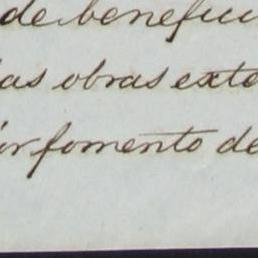 de benefici
las obras exte
or fomento de